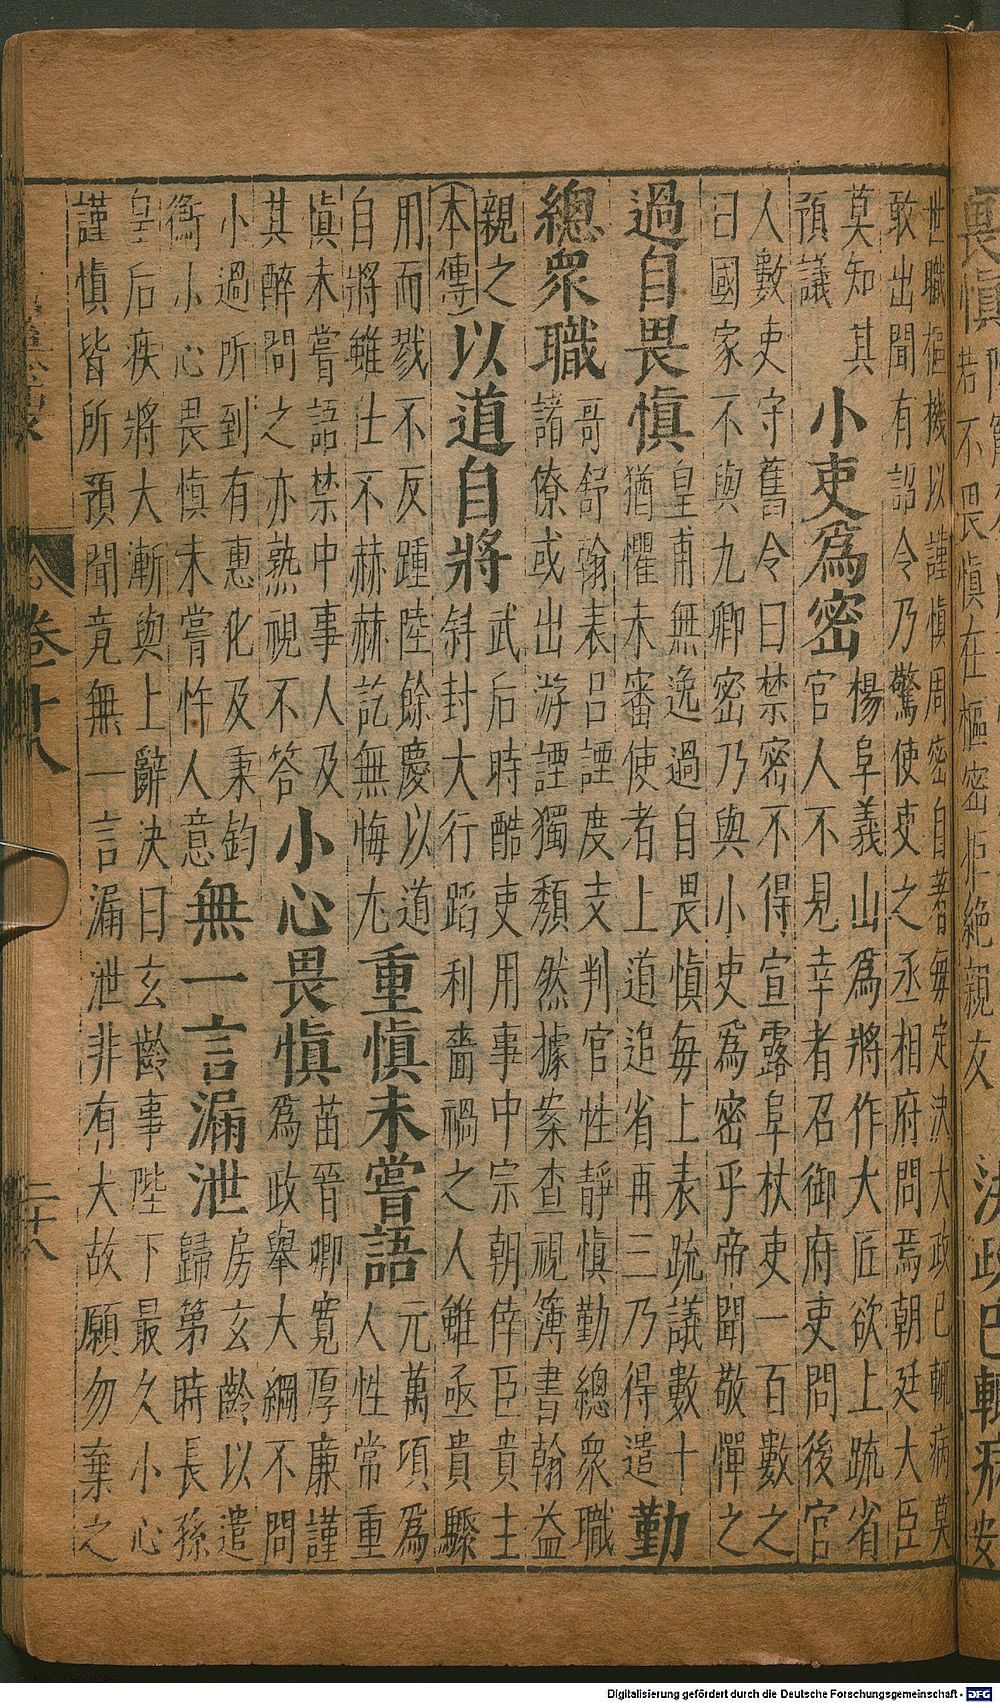 畏慎
若不畏慎在樞密拒絶親友
決政已輒病安
世職樞機以謹慎周密自著每定決大政已輒病莫
敢出聞有詔令乃驚使吏之丞相府問焉朝廷大臣
莫知其
預議
小吏爲密
楊阜義山爲將作大匠欲上疏省
官人不見幸者召御府吏問後官
人數吏守舊令曰禁密不得宣露阜杖吏一百數之
曰國家不與九卿密乃與小吏爲密乎帝聞敬憚之
過自畏慎
皇甫無逸過自畏慎每上表疏議數十
猶懼未審使者上道追省再三乃得遣
勤
總衆職
哥舒翰表呂諲度支判官性靜慎勤總衆職
諸僚或出游諲獨頹然據案查視簿書翰益
親之
本傳
以道自將
武后時酷吏用事中宗朝倖臣貴主
斜封大行蹈利嗇禍之人雖亟貴驟
用而戮不反踵陸餘慶以道
自將雖仕不赫赫訖無悔尤
重慎未嘗語
元萬頃爲
人性常重
慎未嘗語禁中事人及
其醉問之亦熟視不答
小心畏慎
苗晉卿寬厚廉謹
爲政舉大綱不問
小過所到有惠化及秉鈞
衡小心畏慎未嘗忤人意
無一言漏泄
房玄齡以遣
歸第時長孫
皇后疾將大漸與上辭決曰玄齡事陛下最久小心
謹慎皆所預聞竟無一言漏泄非有大故願勿棄之
卷十八
二十八
Digitalisierung gefördert durch die Deutsche Forschungsgemeinschaft - DFG